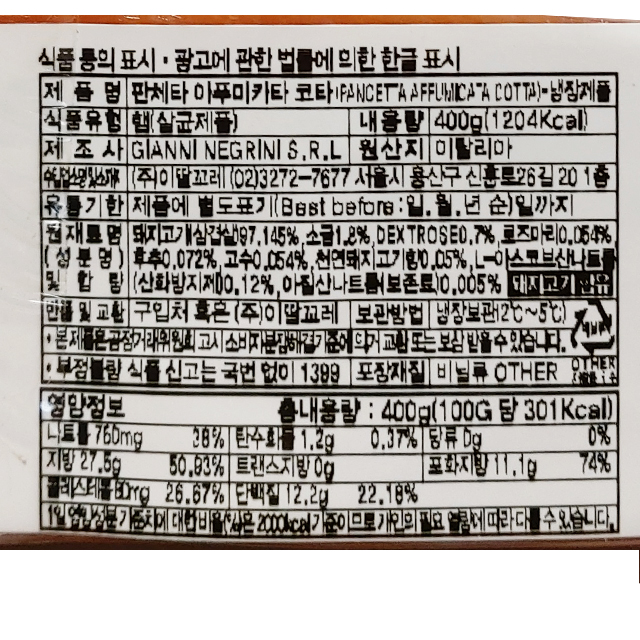 식품 등의 표시·광고에 관한 법률에 의한 한글 표시
제 품 명 판체타 아푸미카타 코타(PANCETTA AFFUMICATA COTTA)-냉장제품
식품유형 햄(살균제품) 내용량 400g(1204Kcal)
제 조 사 GIANNI NEGRINI S.R.L 원산지 이탈리아
(주)이딸꼬레 (02)3272-7677 서울시 용산구 신흥로26길 20 1층
유통기한 제품에 별도표기(Best before:일.월.년 순)일까지
원재료명 돼지고기삼겹살97.145%, 소금1.8%, DEXTROSE0.7%, 로즈마리0.054%,
(성분명) 후추0.072%, 고수0.054%, 천연돼지고기향0.05%, L-아스코브산나트륨
및 함 량 (산화방지제)0.12%, 아질산나트륨(보존료)0.005% 돼지고기 함유
반품 및 교환 구입처 혹은 (주)이딸꼬레 보관방법 냉장보관(2℃~5℃)
·본 제품은 공정거래위원회 고시 소비자분쟁해결기준에 의거 교환 또는 보상 받을 수 있습니다.
·부정불량 식품 신고는 국번 없이 1399 포장재질 비닐류 OTHER OTHER
영양정보 총내용량 : 400g(100G 당 301Kcal)
나트륨 760mg 38% 탄수화물 1.2g 0.37% 당류 0g 0%
지방 27.5g 50.93% 트랜스지방 0g 포화지방 11.1g 74%
콜레스테롤 80mg 26.67% 단백질 12.2g 22.18%
1일 영양성분 기준치에 대한 비율(%)은 2000kcal 기준이므로 개인의 필요 열량에 따라 다를 수 있습니다.